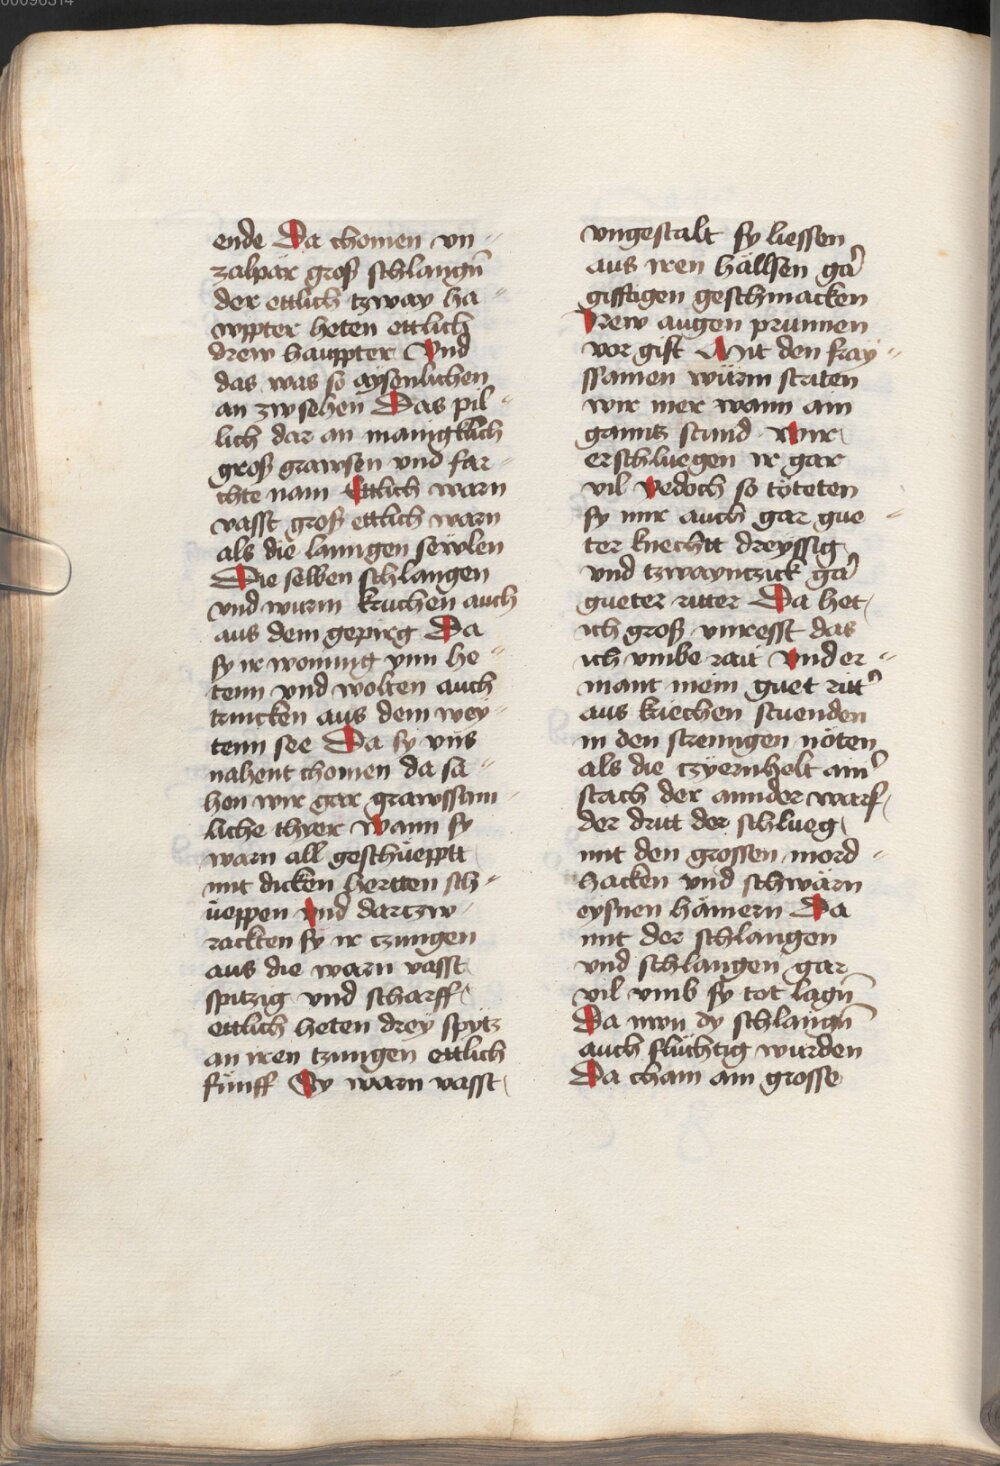 00096314
ende Da chomen vn=
zalpär groß schlangn̄
der ettlich tzway ha=
wpter heten ettlich
drew hauppter Vnd
das was so aysenlichen
an zwsehen Das pil=
lich dar an manigklich
groß grawsen vnd far=
chte nam Ettlich warn
vasst groß ettlich warn
als die lanngen sewlen
Die selben schlangen
vnd wurm kruchen auch
aus dem gepirg Da
sy ir wonung ynn he=
tenn vnd wolten auch
trincken aus dem wey=
tenn see Da sy vns
nahent chomen da sa=
hen wir gar grawssam=
liche thyer Wann sy
warn all geschüepptt
mit dicken hertten sch=
üeppen vnd dartzw
rackten sy ir czungen
aus die warn vasst
spitzig vnd scharff
ettlich heten drey spytz
an iren tzungen ettlich
fünff Sy warn vasst
vngestalt sy liessen
aus iren hällsen gar
gifftigen geschmacken
Irew augen prunnen
vor gift Mit den fray=
ssamen würm striten
wir mer wann ain
ganntz stund Wir
erschluegen ir gar
vil Yedoch so töteten
sy mir auch gar gue=
ter knechtt dreyssig
vnd tzwayntzick gar
gueter ritter Da het
ich groß vnresst das
ich vmbe rait Vnd er=
mant mein guet ritter
aus kriechen stuenden
in den strenngen nöten
als die czyernhelt ainer
stach der annder warf
der dritt der schlueg
mit den grossen mord=
hacken vnd schwärn
eysnen hämern Da
mit der schlangen
vnd schlangen gar
vil vmb sy tot lagn̄
Da nwn dy schlangn̄
auch flüchtig wurden
Da cham ain grosse